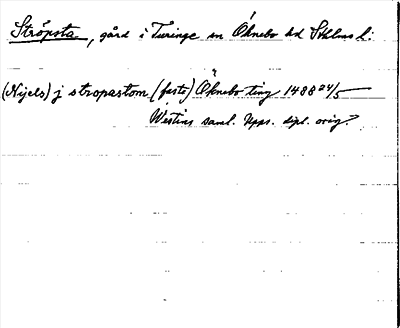 Ströpsta, gård i Turinge sn Öknebo hd Sthlms l:
(Nijels) j stropastom (faste) Öknebo ting 1488 24/5
Westins saml. Upps. dipl. orig?